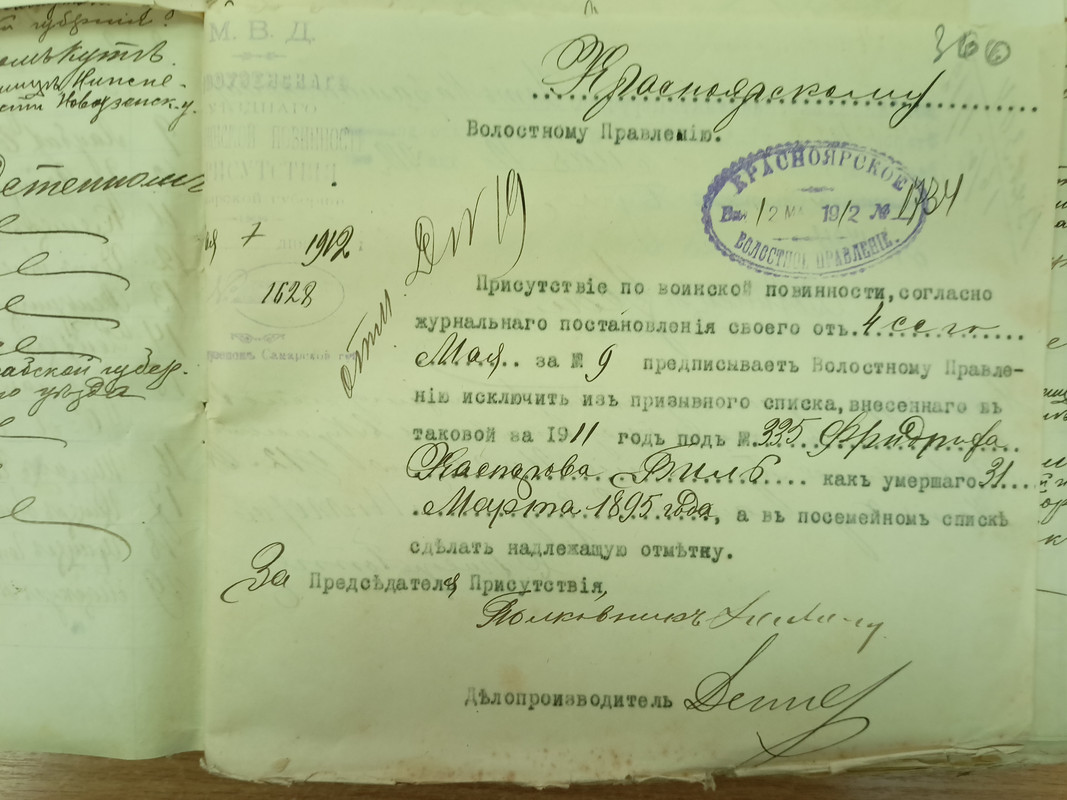 губерніи?
Новоузенск. у.
Степномъ
губер.
уѣзда
М. В. Д.
УѢЗДНАГО
ПОВИННОСТИ
ПРИСУТСТВІЯ
7 1912
1628
Самарской
366
Красноярскому
Волостному Правленію.
КРАСНОЯРСКОЕ
Вх. 12 МА 1912 № 1734
ВОЛОСТНОЕ ПРАВЛЕНІЕ.
Д № 19
Присутствіе по воинской повинности, согласно
журнальнаго постановленія своего отъ 4 сего
Мая за № 9 предписываетъ Волостному Правле-
нію исключить изъ призывного списка, внесеннаго въ
таковой за 1911 годъ подъ № 325 Фридриха
Каспарова Виль как умершаго 31
Марта 1895 года, а въ посемейномъ спискѣ
сдѣлать надлежащую отмѣтку.
За Предсѣдателя Присутствія,
Полковникъ
Дѣлопроизводитель